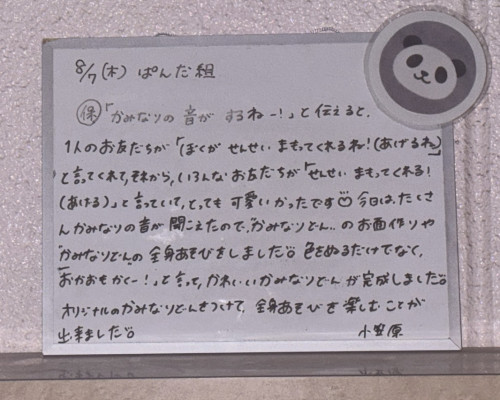 8/7(木) ぱんだ組
保「かみなりの音がするねー!」と伝えると、
1人のお友だちが「ぼくがせんせいまもってくれるね!(あげるね)
と言ってくれて、それから、いろんなお友だちが「せんせいまもってくれる!
(あげる)」と言っていて、とっても可愛いかったです♡今日は、たくさ
んかみなりの音が聞こえたので、"かみなりどん"のお面作りや
"かみなりどん"の全身あそびをしました。色をぬるだけでなく、
「おかおもかくー!」と言って、かわいいかみなりどんが完成しました。
オリジナルのかみなりどんをつけて、全身あそびを楽しむことが
出来ました。 小笠原